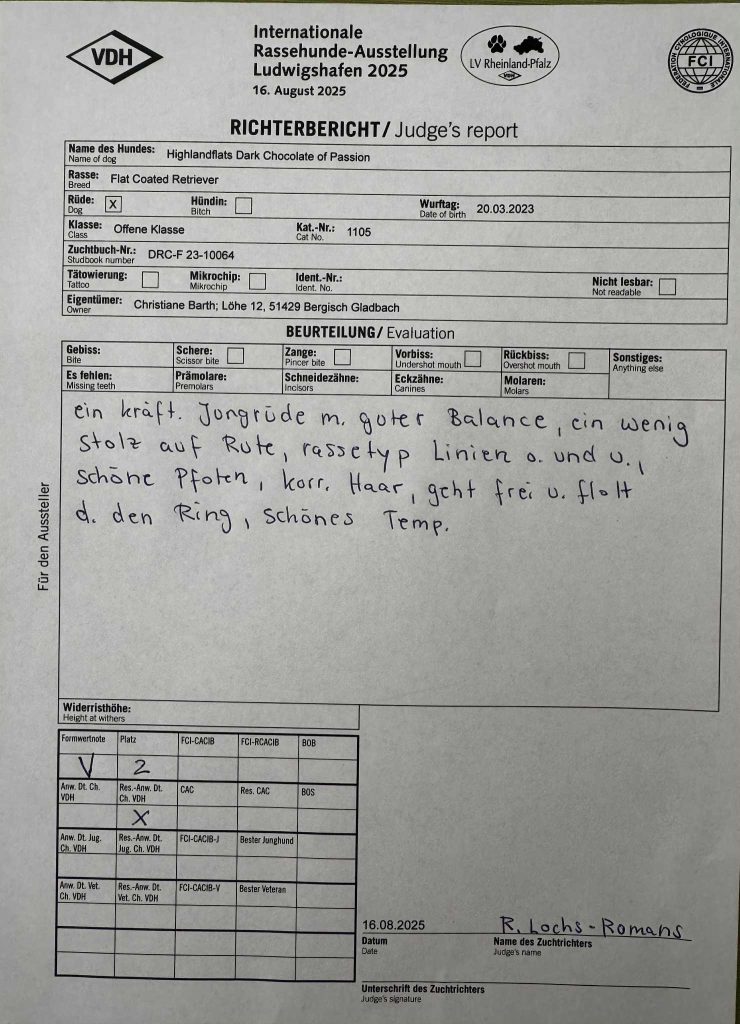 VDH
Internationale
Rassehunde-Ausstellung
Ludwigshafen 2025
16. August 2025
LV Rheinland-Pfalz
VDH
FEDERATION CYNOLOGIQUE INTERNATIONALE
FCI
RICHTERBERICHT/ Judge's report
Name des Hundes: Highlandflats Dark Chocolate of Passion
Name of dog
Rasse: Flat Coated Retriever
Breed
Rüde: X Hündin: Wurftag: 20.03.2023
Dog Bitch Date of birth
Klasse: Offene Klasse Kat.-Nr.: 1105
Class Cat No.
Zuchtbuch-Nr.: DRC-F 23-10064
Studbook number
Tätowierung: Mikrochip: Ident.-Nr.: Nicht lesbar:
Tattoo Mikrochip Ident. No. Not readable
Eigentümer: Christiane Barth; Löhe 12, 51429 Bergisch Gladbach
Owner
BEURTEILUNG/ Evaluation
Gebiss: Schere: Zange: Vorbiss: Rückbiss: Sonstiges:
Bite Scissor bite Pincer bite Undershot mouth Overshot mouth Anything else
Es fehlen: Prämolare: Schneidezähne: Eckzähne: Molaren:
Missing teeth Premolars Incisors Canines Molars
ein kräft. Jungrüde m. guter Balance, ein wenig
stolz auf Rute, rassetyp Linien o. und u.,
schöne Pfoten, korr. Haar, geht frei u. flott
d. den Ring, schönes Temp.
Für den Aussteller
Widerristhöhe:
Height at withers
Formwertnote Platz FCI-CACIB FCI-RCACIB BOB
V 2
Anw. Dt. Ch. Res.-Anw. Dt. CAC Res. CAC BOS
VDH Ch. VDH
X
Anw. Dt. Jug. Res.-Anw. Dt. FCI-CACIB-J Bester Junghund
Ch. VDH Jug. Ch. VDH
Anw. Dt. Vet. Res.-Anw. Dt. FCI-CACIB-V Bester Veteran
Ch. VDH Vet. Ch. VDH
16.08.2025 R. Lochs-Romans
Datum Name des Zuchtrichters
Date Judge's name
Unterschrift des Zuchtrichters
Judge's signature